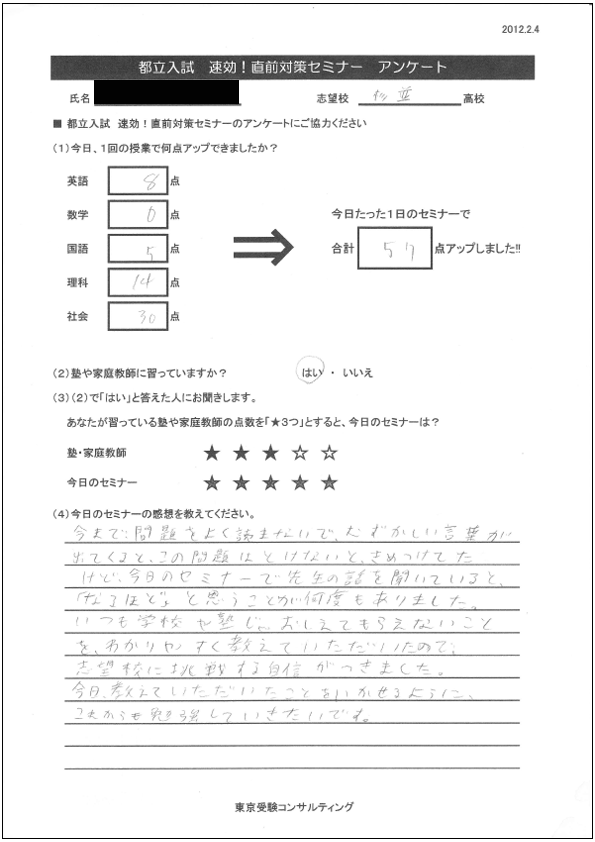 2012.2.4
都立入試 速効！直前対策セミナー アンケート
氏名 志望校 杉並 高校
■ 都立入試 速効！直前対策セミナーのアンケートにご協力ください
（1）今日、1回の授業で何点アップできましたか？
英語 8 点
数学 0 点
国語 5 点
理科 14 点
社会 30 点
今日たった1日のセミナーで
合計 57 点アップしました!!
（2）塾や家庭教師に習っていますか？ はい ・ いいえ
（3）（2）で「はい」と答えた人にお聞きします。
あなたが習っている塾や家庭教師の点数を「★3つ」とすると、今日のセミナーは？
塾・家庭教師 ★ ★ ★ ☆ ☆
今日のセミナー ★ ★ ★ ★ ★
（4）今日のセミナーの感想を教えてください。
今まで、問題をよく読まないで、むずかしい言葉が
出てくると、この問題はとけないと、きめつけてた
けど、今日のセミナーで先生の話を聞いていると、
「なるほど」と思うことが何度もありました。
いつも学校や塾じゃおしえてもらえないこと
を、わかりやすく教えていただいたので、
志望校に挑戦する自信がつきました。
今日、教えていただいたことをいかせるように、
これからも勉強していきたいです。
東京受験コンサルティング